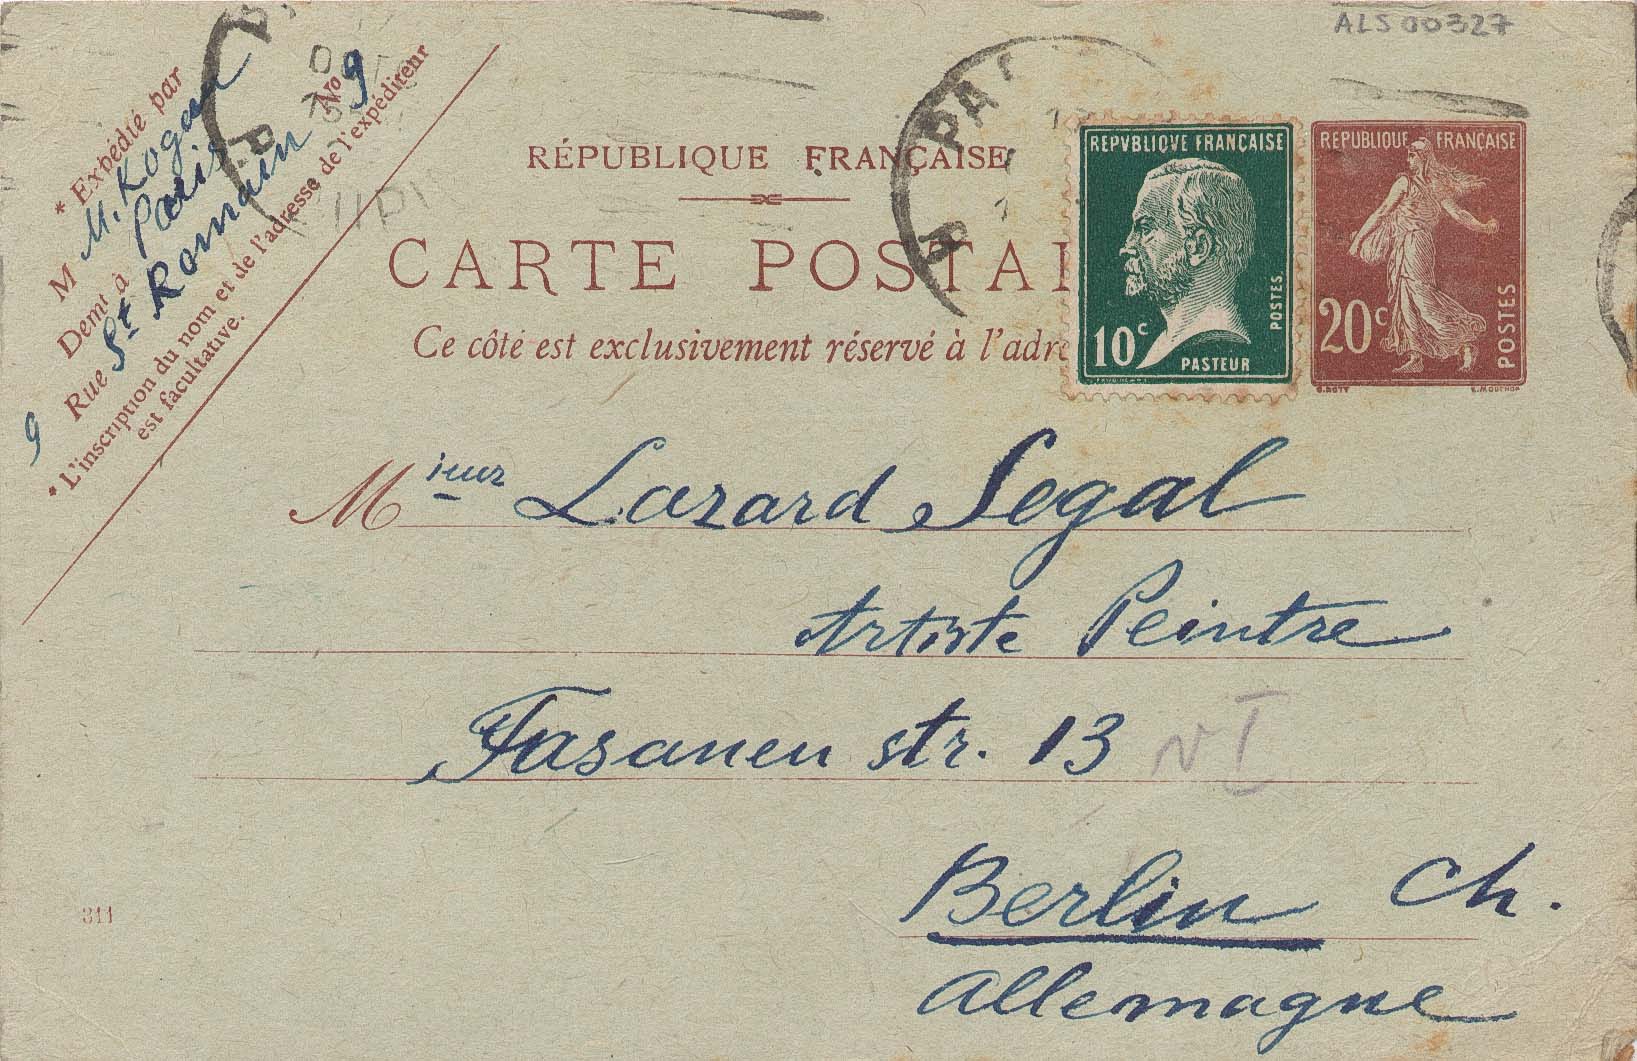 ALS 00327
* Expédié par
M M. Kogan
Demt à Paris
Rue St Romain No 9
9
* L'inscription du nom et de l'adresse de l'expéditeur
est facultative.
RÉPUBLIQUE FRANÇAISE
CARTE POSTAL
Ce côté est exclusivement réservé à l'adre
PA
REPVBLIQVE FRANÇAISE
10c
PASTEUR
POSTES
REPUBLIQUE FRANÇAISE
20c
POSTES
O. ROTY
E. MOUCHON
Mieur Lazard Segal
Artiste Peintre
Fasanen str. 13
Berlin Ch.
Allemagne
311